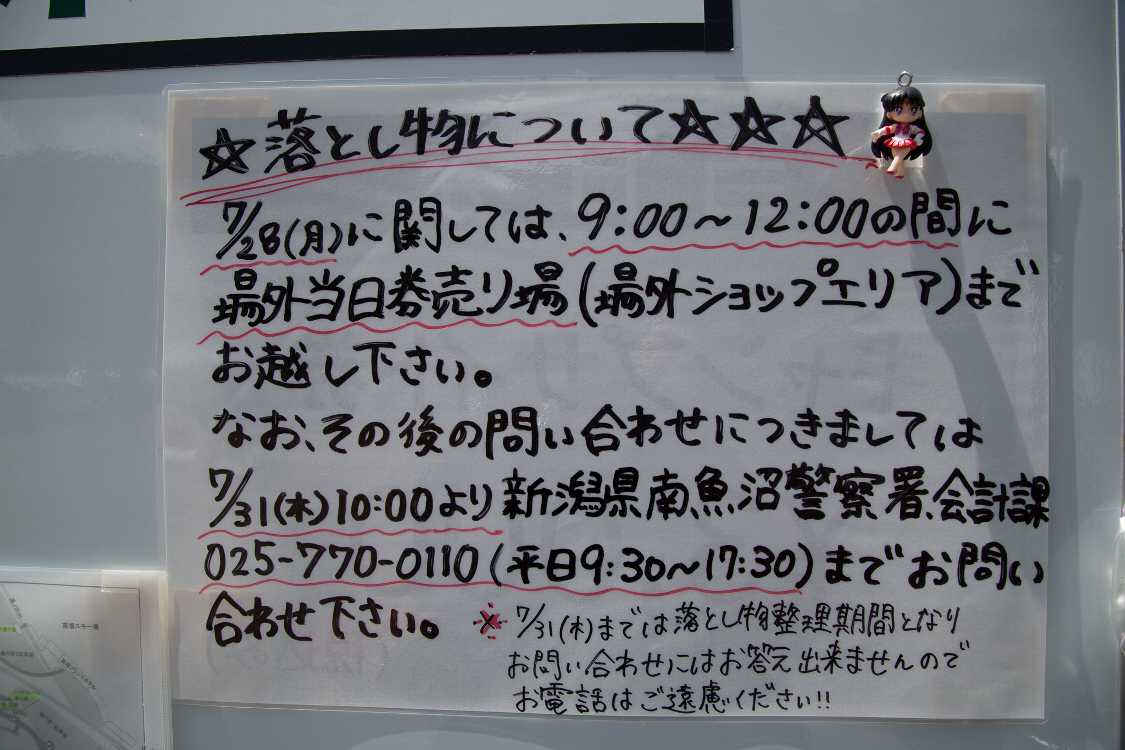 ☆落とし物について☆☆☆
7/28(月)に関しては、9:00〜12:00の間に
場外当日券売り場(場外ショップエリア)まで
お越し下さい。
なお、その後の問い合わせにつきましては
7/31(木)10:00より新潟県南魚沼警察署、会計課
025-770-0110(平日9:30〜17:30)までお問い
合わせ下さい。
※7/31(木)までは落とし物整理期間となり
お問い合わせにはお答え出来ませんので
お電話はご遠慮ください!!